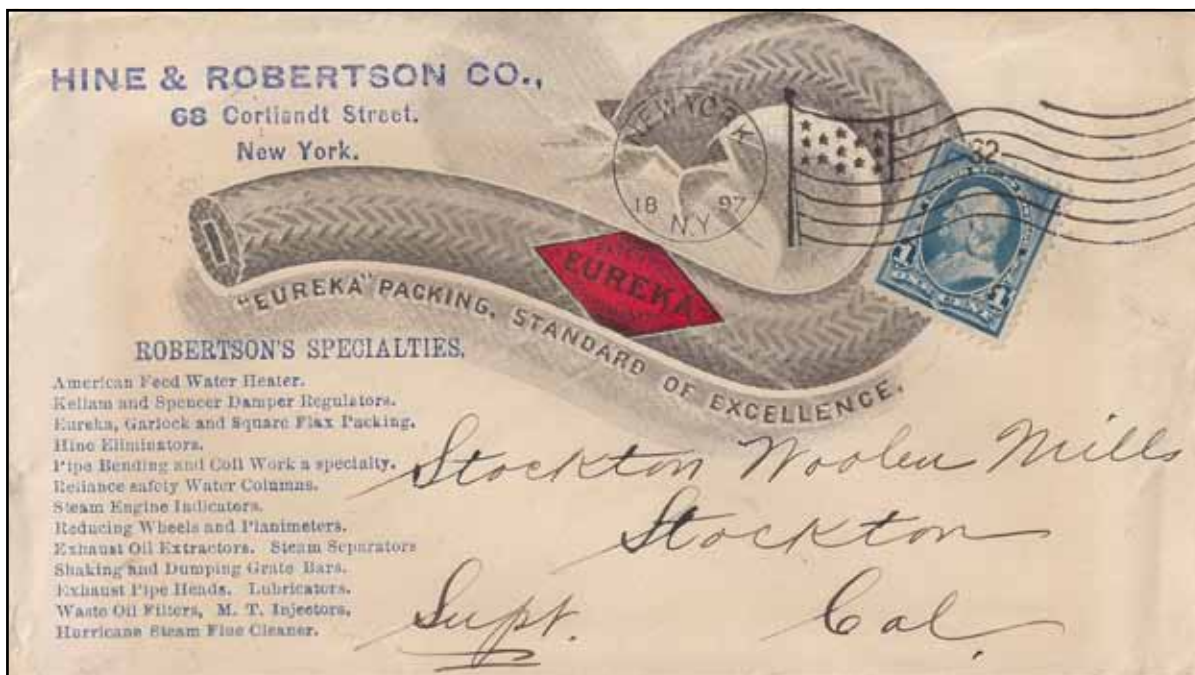 HINE & ROBERTSON CO.,
68 Cortlandt Street.
New York.
NEW YORK
18 97
N.Y.
62
EUREKA
"EUREKA" PACKING, STANDARD OF EXCELLENCE.
ROBERTSON'S SPECIALTIES.
American Feed Water Heater.
Kellam and Spencer Damper Regulators.
Eureka, Garlock and Square Flax Packing.
Hine Eliminators.
Pipe Bending and Coil Work a specialty.
Reliance safety Water Columns.
Steam Engine Indicators.
Reducing Wheels and Planimeters.
Exhaust Oil Extractors. Steam Separators
Shaking and Dumping Grate Bars.
Exhaust Pipe Heads. Lubricators.
Waste Oil Filters, M. T. Injectors,
Hurricane Steam Flue Cleaner.
Stockton Woolen Mills
Stockton
Supt. Cal.